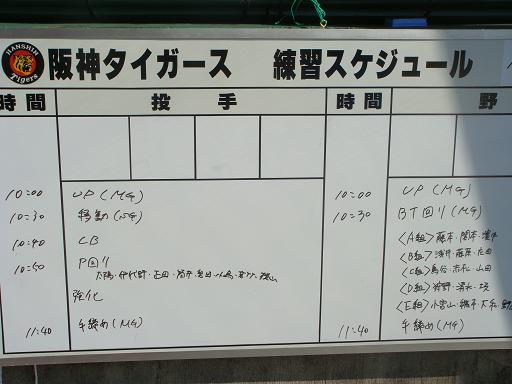 HANSHIN Tigers
阪神タイガース 練習スケジュール
時間 投手 時間 野
10:00 UP(MG)
10:30 移動(SG)
10:40 CB
10:50 P回り
強化
11:40 手締め(MG)
10:00 UP(MG)
10:30 BT回り(MG)
<A組>藤本・関本
<B組>浅井・藤原・庄田
<C組>鳥谷・赤松・山田
<D組>狩野・清水
<E組>小宮山・橋本・大和・野原
11:40 手締め(MG)